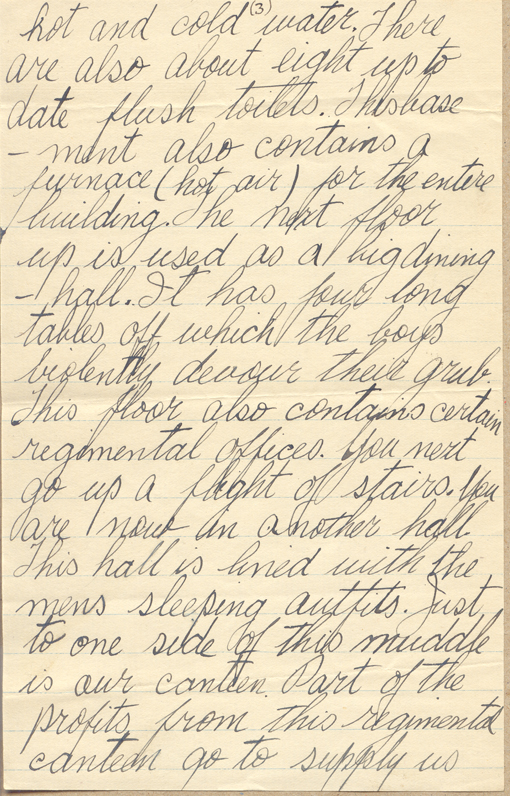 (3)
hot and cold water. There
are also about eight up to
date flush toilets. This base
- ment also contains a
furnace (hot air) for the entere
building. The next floor
up is used as a big dining
- hall. It has four long
tables off which the boys
violently devour their grub.
This floor also contains certain
regimental offices. You next
go up a flight of stairs. You
are now in another hall
This hall is lined with the
mens sleeping outfits. Just
to one side of this muddle
is our canteen. Part of the
profits from this regimental
canteen go to supply us